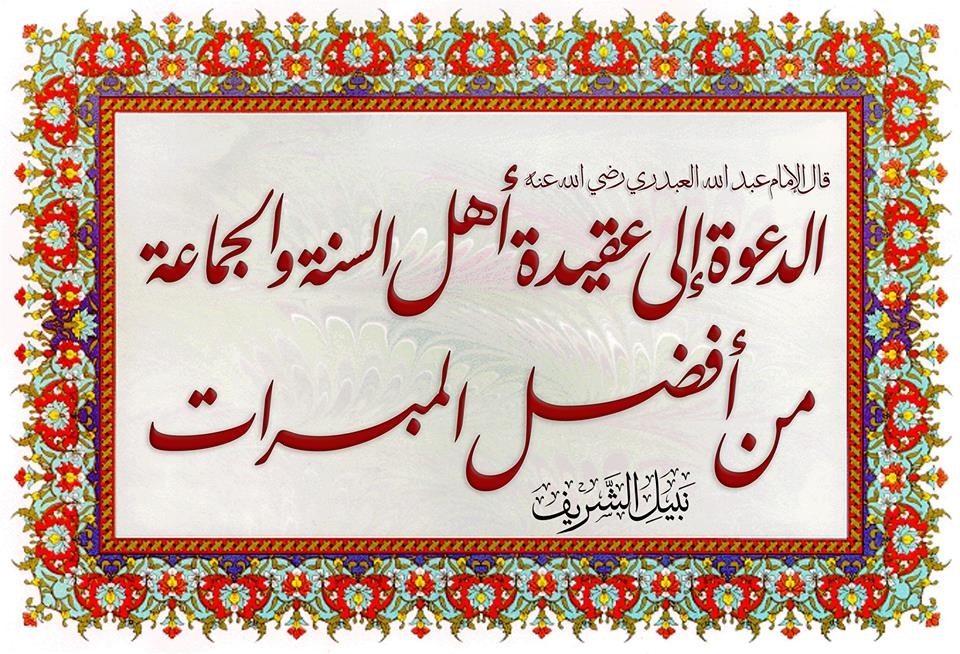 قال الإمام عبد الله العبدري رضي الله عنه
الدعوة إلى عقيدة أهل السنة والجماعة
من أفضل المبرات
نَبيل الشَّريف